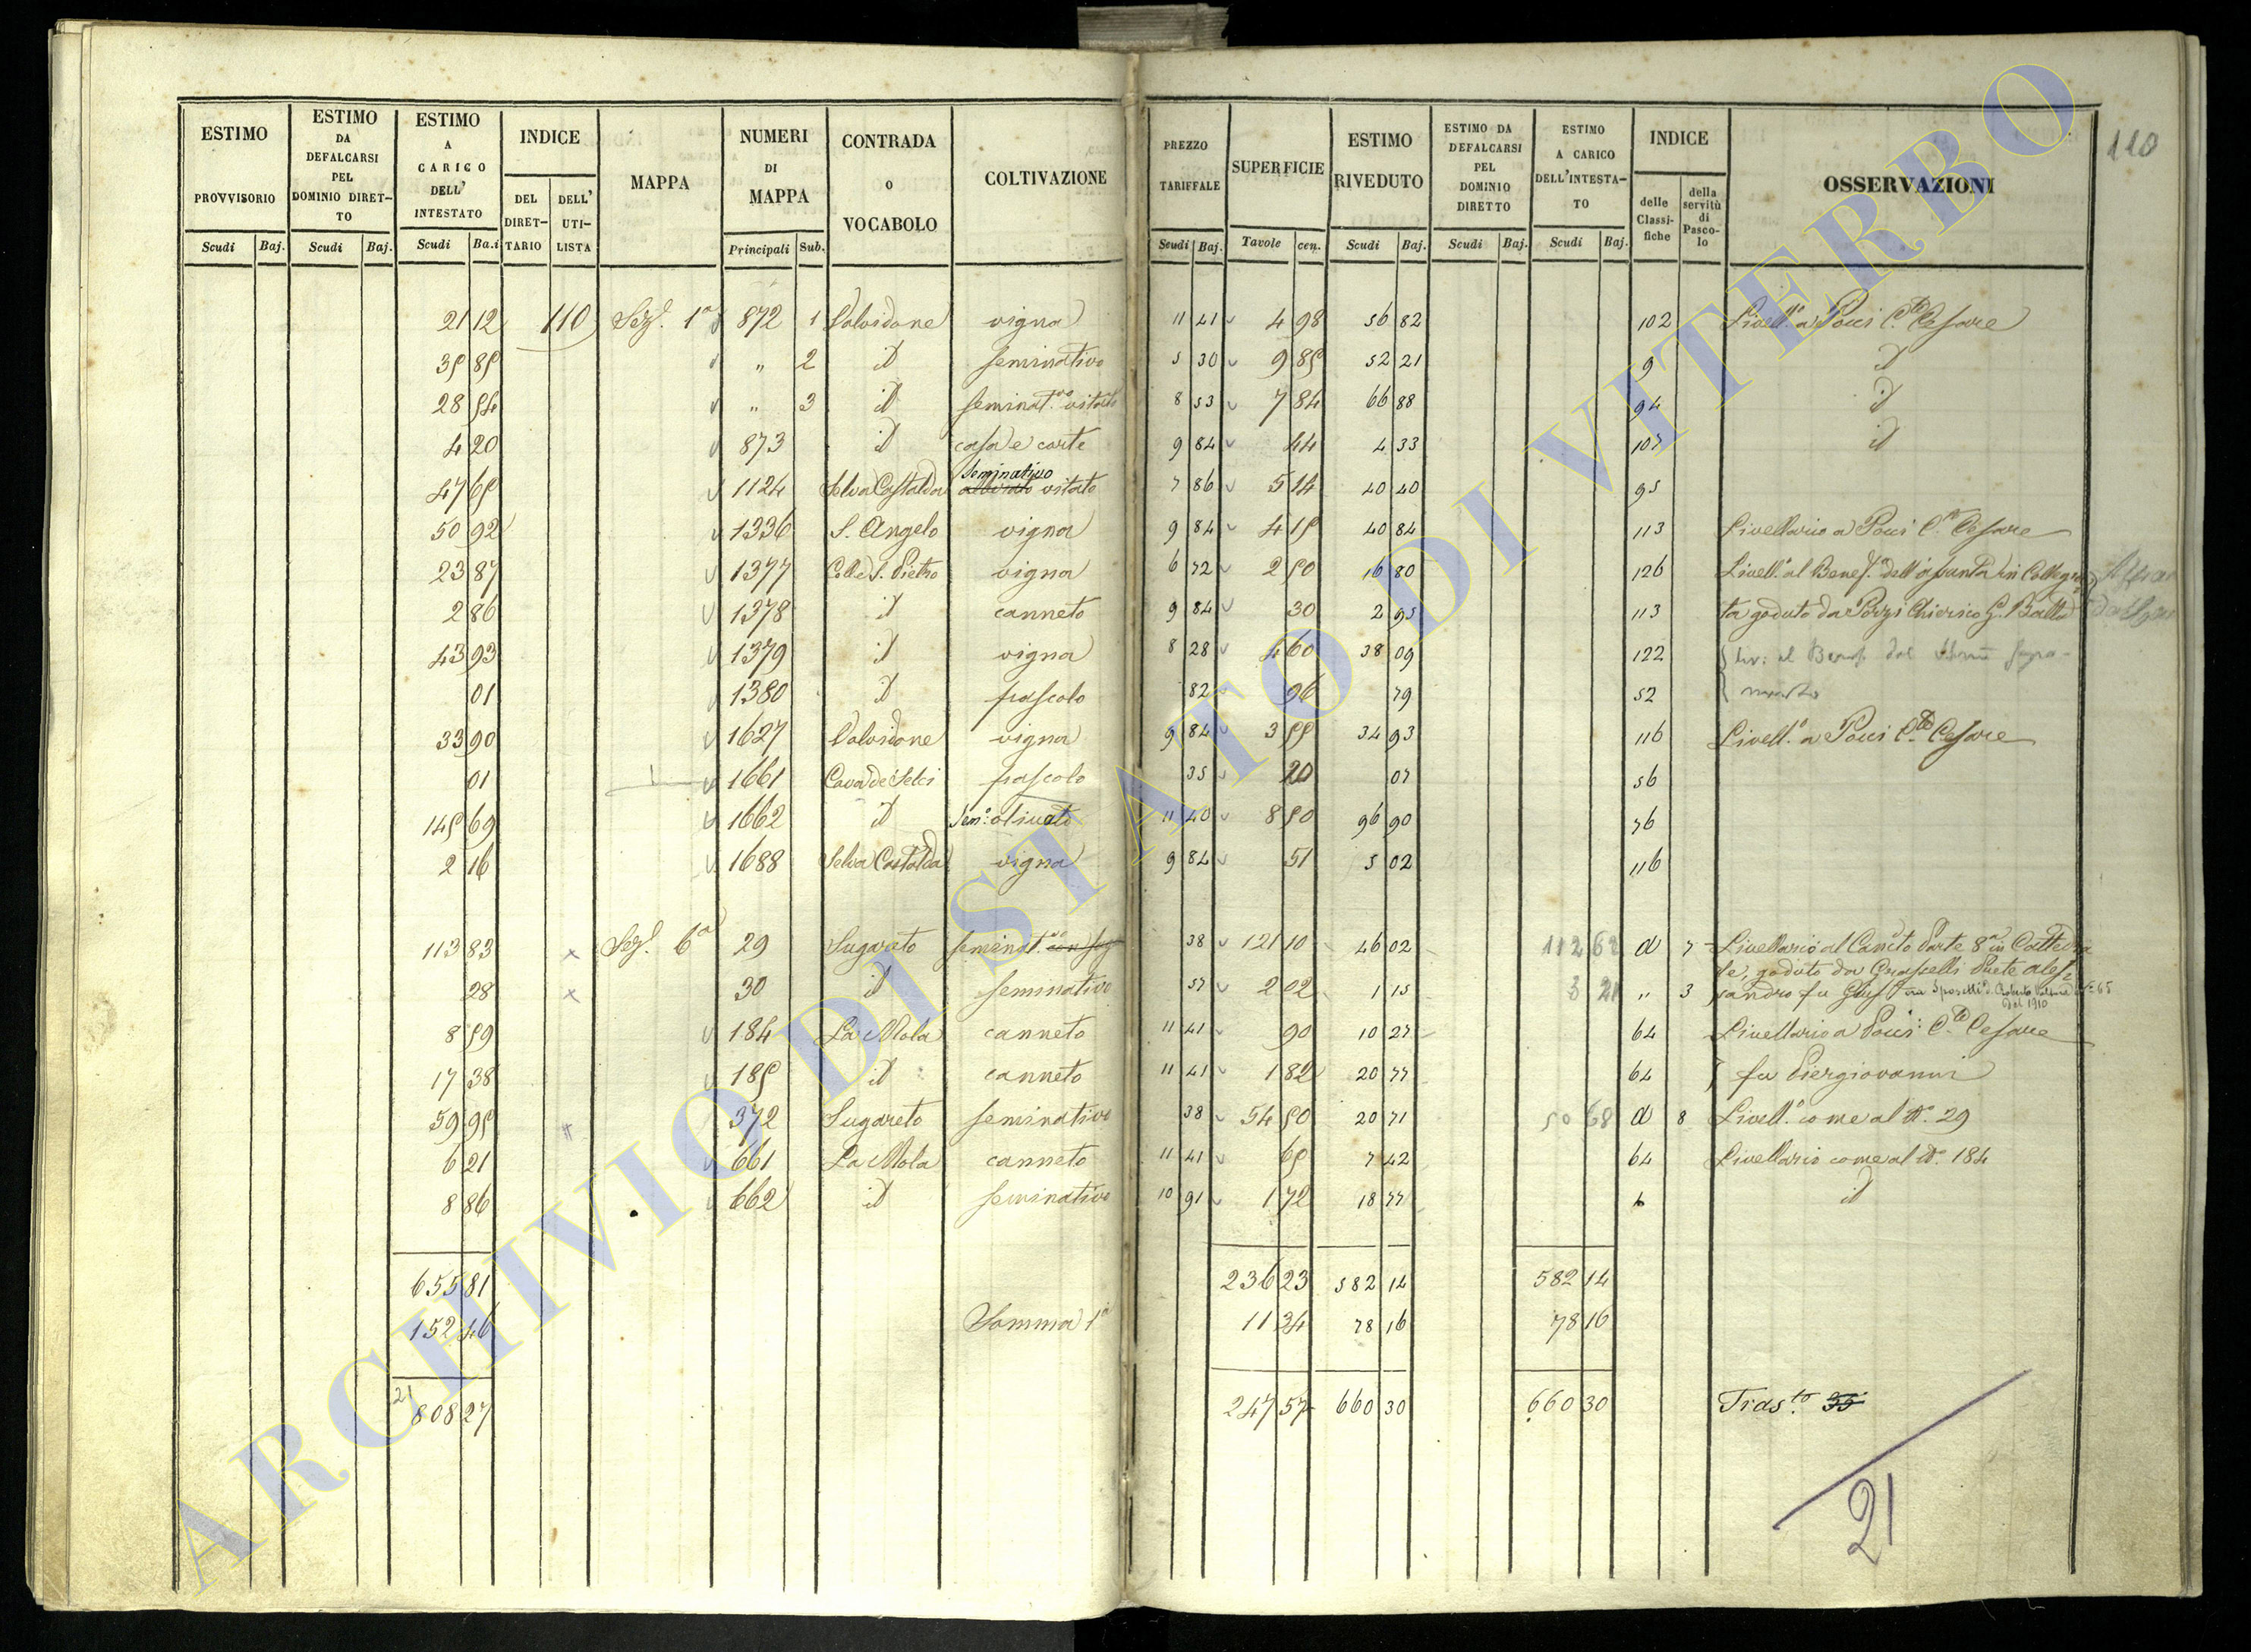 110
ESTIMO PROVVISORIO Scudi Baj.
ESTIMO DA DEFALCARSI PEL DOMINIO DIRETTO Scudi Baj.
ESTIMO A CARICO DELL' INTESTATO Scudi Ba.i
INDICE DEL DIRETTARIO DELL' UTILISTA
MAPPA
NUMERI DI MAPPA Principali Sub.
CONTRADA O VOCABOLO
COLTIVAZIONE
PREZZO TARIFFALE Scudi Baj.
SUPERFICIE Tavole cen.
ESTIMO RIVEDUTO Scudi Baj.
ESTIMO DA DEFALCARSI PEL DOMINIO DIRETTO Scudi Baj.
ESTIMO A CARICO DELL'INTESTATO Scudi Baj.
INDICE delle Classifiche della servitù di Pascolo
OSSERVAZIONI
21 12 110 Sez. 1a 872 1 Valvidone vigna 11 41 4 98 56 82 102 Livell.o a Pocci C.te Cesare
35 85 " 2 id seminativo 5 30 9 85 52 21 9 id
28 54 " 3 id seminat.vo vitato 8 53 7 84 66 88 94 id
4 20 873 id casa e corte 9 84 44 4 33 107 id
47 65 1124 Selva Castalda seminativo vitato 7 86 5 14 40 40 95
50 92 1336 S. Angelo vigna 9 84 4 15 40 84 113 Livellario a Pocci C.te Cesare
23 87 1377 Colle S. Pietro vigna 6 72 2 50 16 80 126 Livell.o al Benef. dell'Assunta in Collegia
2 86 1378 id canneto 9 84 30 2 95 113 ta goduto da Pozzi Chierico G. Batta
43 93 1379 id vigna 8 28 4 60 38 09 122
01 1380 id pascolo 82 96 79 52
33 90 1627 Valvidone vigna 9 84 3 55 34 93 116 Livell.o a Pocci C.te Cesare
01 1661 Cava de Selci pascolo 35 20 07 56
145 69 1662 id Sem.o olivato 11 40 8 50 96 90 76
2 16 1688 Selva Castalda vigna 9 84 51 5 02 116
113 83 Sez. 6a 29 Sugareto seminat.vo 38 121 10 46 02 112 62 d 7 Livellario al Can.to Parte 8a in Cattedra
le, goduto da Grasselli Prete Ales
28 30 id seminativo 57 2 02 1 15 3 21 " 3 sandro fu Gius.
del 1910
8 59 184 La Mola canneto 11 41 90 10 27 64 Livellario a Pocci C.te Cesare
17 38 185 id canneto 11 41 1 82 20 77 64 fu Piergiovanni
59 95 372 Sugareto seminativo 38 54 50 20 71 50 68 d 8 Livell.o come al N.o 29
6 21 661 La Mola canneto 11 41 65 7 42 64 Livellario come al N.o 184
8 86 662 id seminativo 10 91 1 72 18 77 6 id
655 81 236 23 582 14 582 14
152 46 Somma 1a 11 34 78 16 78 16
21
808 27 247 57 660 30 660 30 Tras.to 35
21
ARCHIVIO DI STATO DI VITERBO